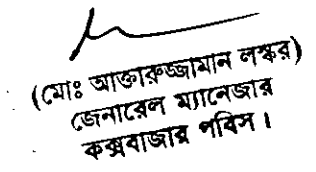 (মোঃ আক্তারুজ্জামান লস্কর)
জেনারেল ম্যানেজার
কক্সবাজার পবিস।